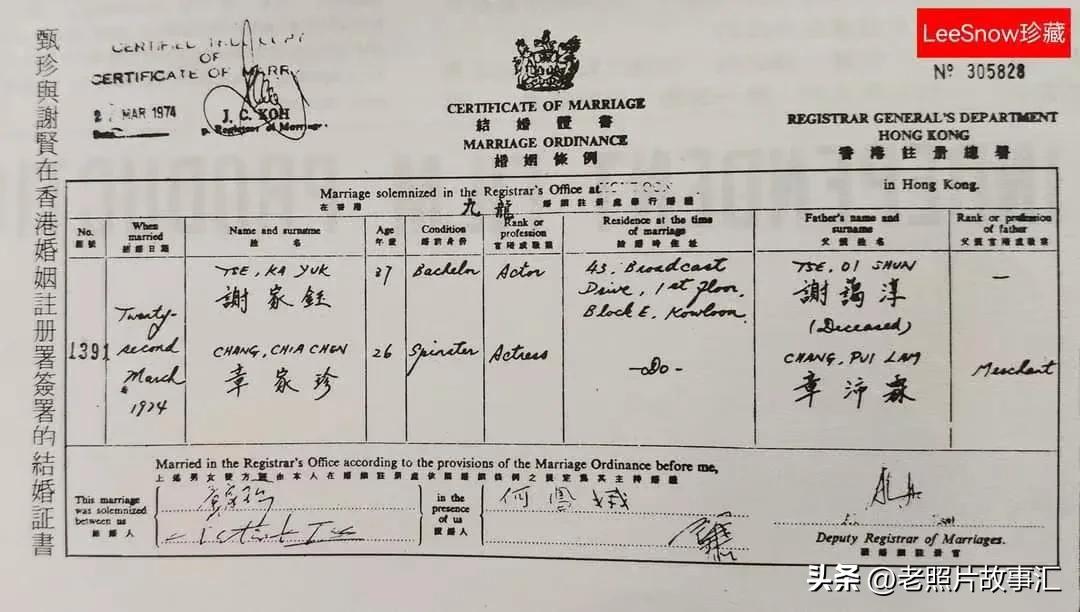 LeeSnow珍藏
甄珍與謝賢在香港婚姻註册署簽署的結婚証書
CERTIFIED TRUE COPY
OF
CERTIFICATE OF MARRY
MAR 1974
J. C. KOH
p. Registrar of Marriage.
CERTIFICATE OF MARRIAGE
結婚證書
MARRIAGE ORDINANCE
婚姻條例
Nº 305828
REGISTRAR GENERAL'S DEPARTMENT
HONG KONG
香港註册總署
Marriage solemnized in the Registrar's Office at in Hong Kong.
在香港 九龍 婚姻註册處舉行婚禮
No.
When married
Name and surname
姓名
Age
年歲
Condition
Rank or profession
Residence at the time of marriage
Father's name and surname
父親姓名
Rank or profession of father
1391
Twenty-second March 1974
TSE, KA YUK
謝家鈺
37
Bachelor
Actor
43, Broadcast Drive, 1st floor, Block E, Kowloon.
TSE, DI SHUN
謝
(Deceased)
—
CHANG, CHIA CHEN
章家珍
26
Spinster
Actress
-Do-
CHANG, PUI LAM
章沛霖
Merchant
Married in the Registrar's Office according to the provisions of the Marriage Ordinance before me,
This marriage was solemnized between us
結婚人
in the presence of us
證婚人
何鳳
Deputy Registrar of Marriages.
頭条 @老照片故事汇